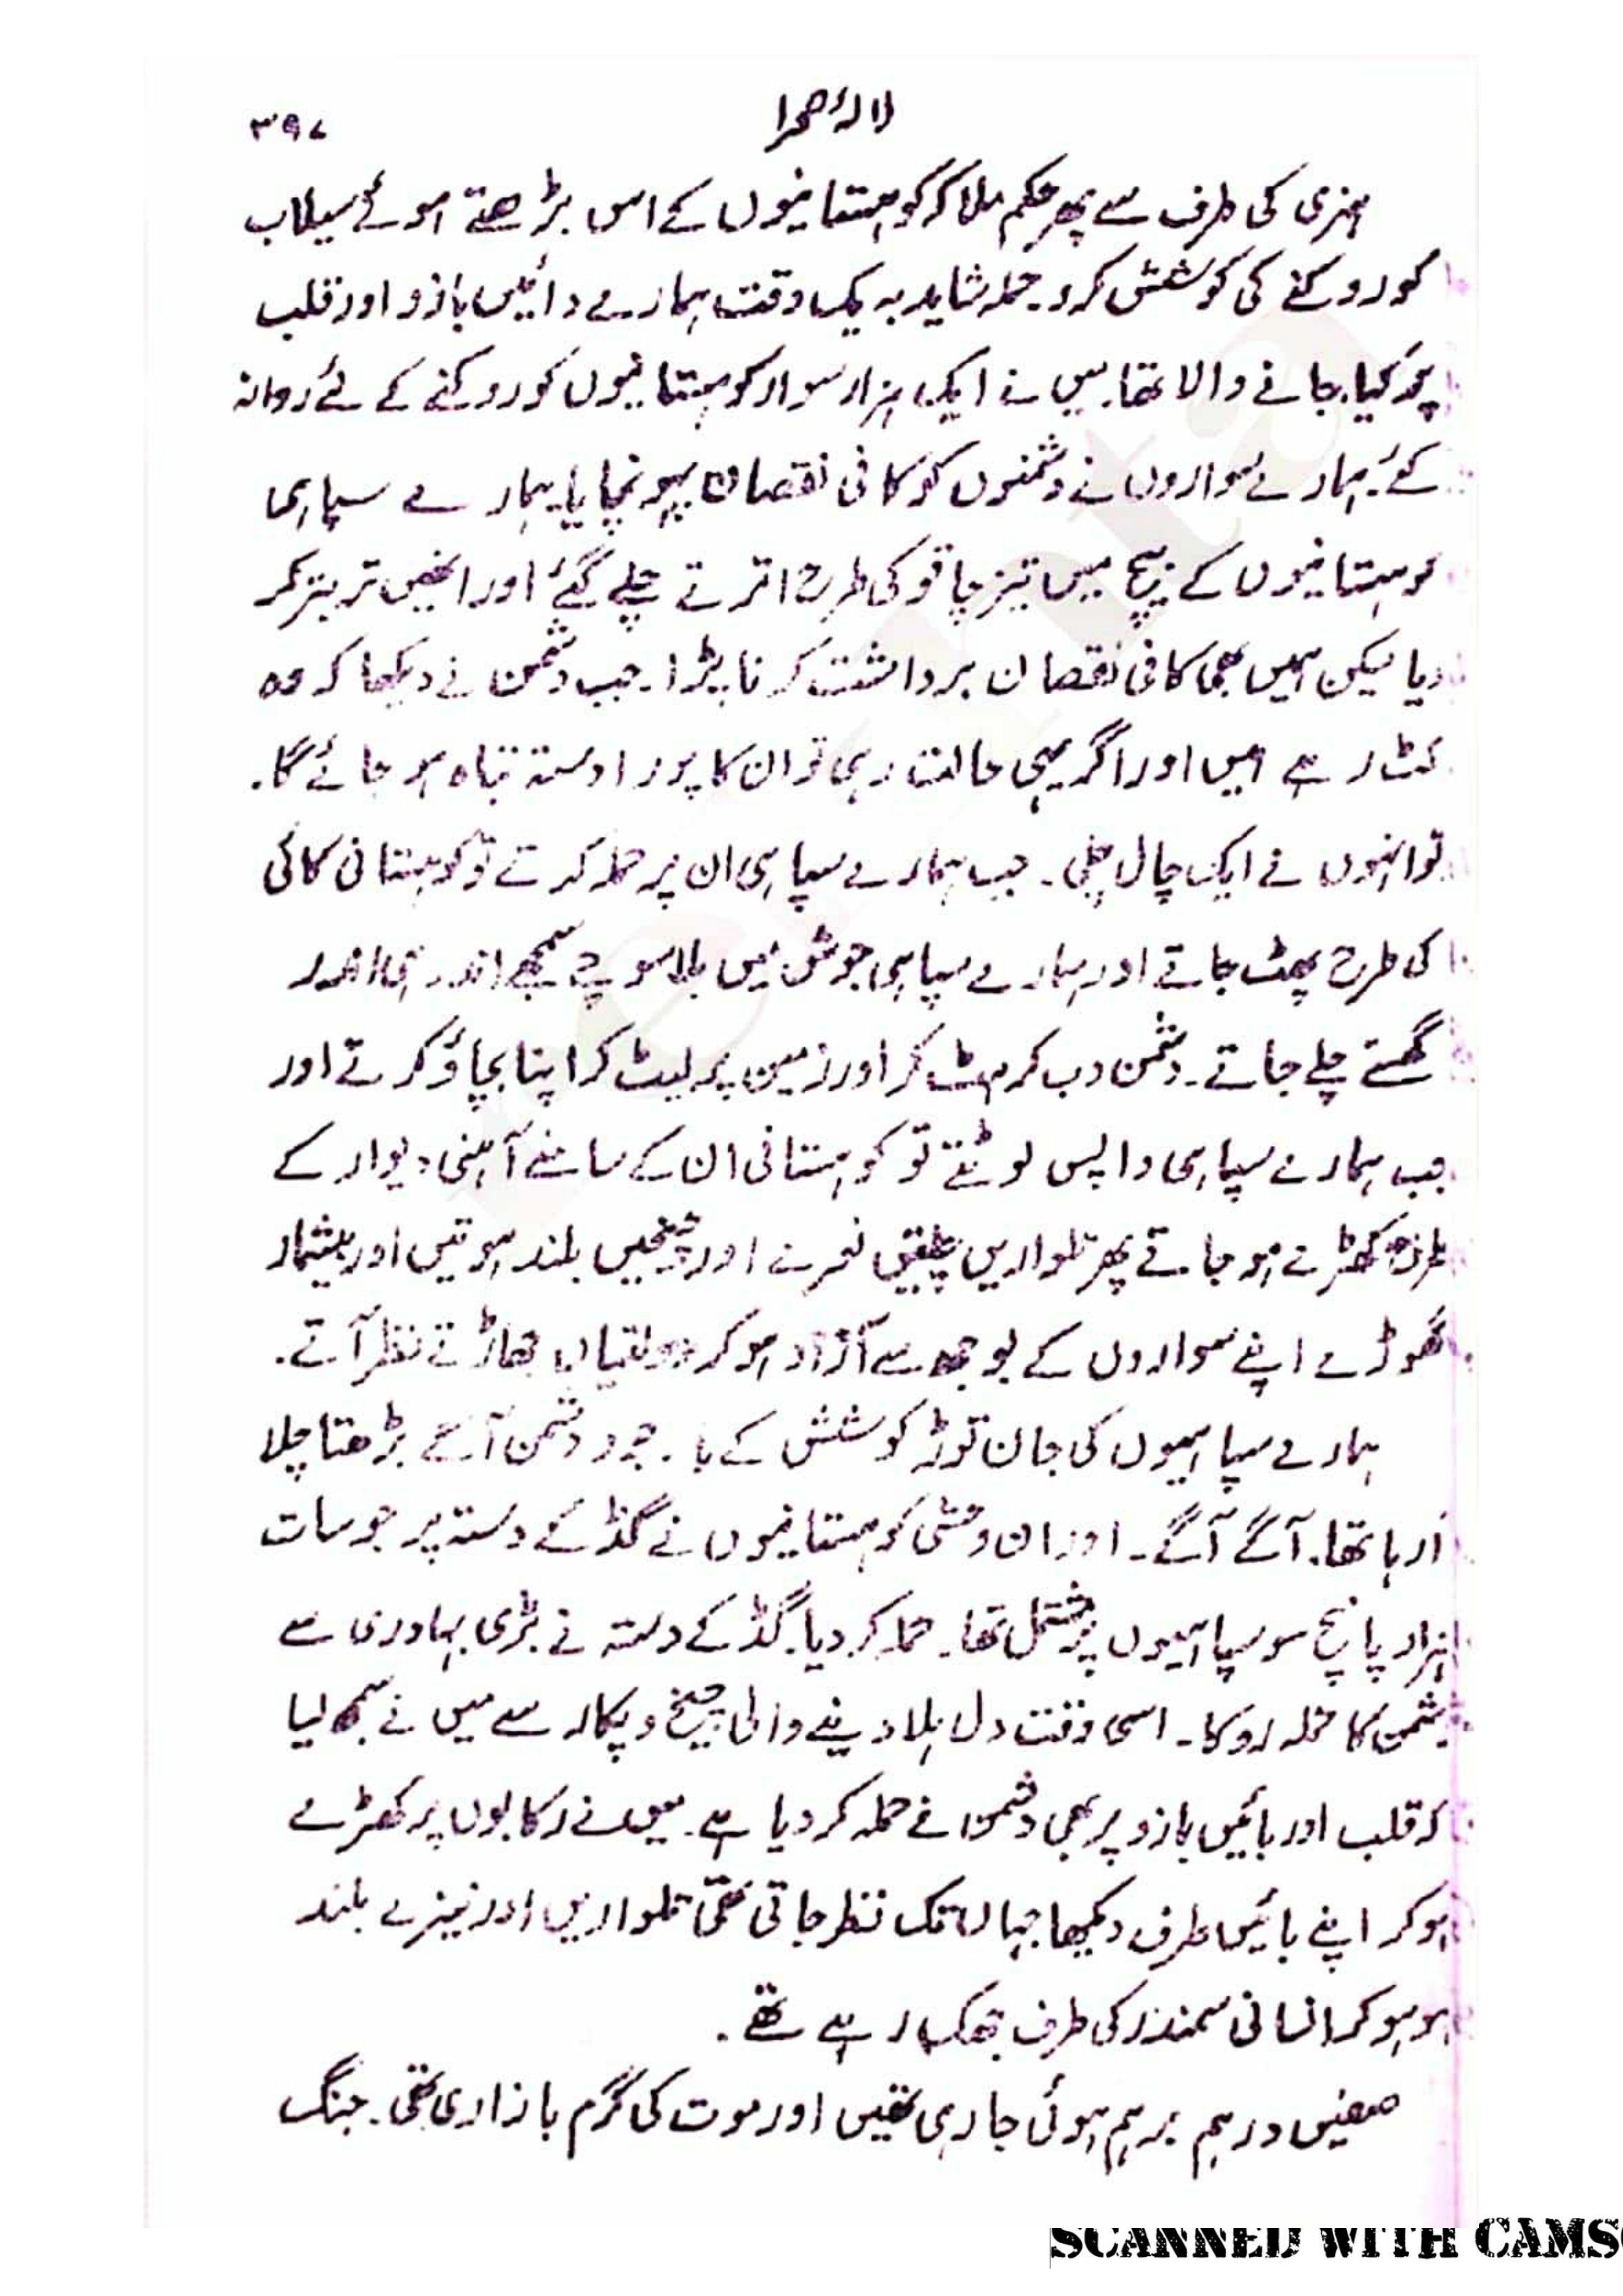 لالۂ صحرا
۳۹۷
ہنری کی طرف سے پھر حکم ملا کہ کوہستانیوں کے اس بڑھتے ہوئے سیلاب
کو روکنے کی کوشش کرو۔ حملہ شاید بہ یک وقت ہمارے دائیں بازو اور قلب
پر کیا جانے والا تھا۔ میں نے ایک ہزار سوار کوہستانیوں کو روکنے کے لئے روانہ
کئے۔ ہمارے سواروں نے دشمنوں کو کافی نقصان پہونچایا۔ ہمارے سپاہی
کوہستانیوں کے بیچ میں تیز چاقو کی طرح اترتے چلے گئے اور انھیں تر بتر کر
دیا لیکن ہمیں بھی کافی نقصان برداشت کرنا پڑا۔ جب دشمن نے دیکھا کہ وہ
کٹ رہے ہیں اور اگر یہی حالت رہی تو ان کا پورا دستہ تباہ ہو جائے گا۔
تو انہوں نے ایک چال چلی۔ جب ہمارے سپاہی ان پر حملہ کرتے تو کوہستانی کائی
کی طرح پھٹ جاتے اور ہمارے سپاہی جوش میں بلا سوچے سمجھے اندر ہی اندر
گھستے چلے جاتے۔ دشمن دب کر ہٹ کر اور زمین پر لیٹ کر اپنا بچاؤ کرتے اور
جب ہمارے سپاہی واپس لوٹتے تو کوہستانی ان کے سامنے آہنی دیوار کے
طرح کھڑے ہو جاتے پھر تلواریں چلتیں نعرے اور چیخیں بلند ہوتیں اور بیشمار
گھوڑے اپنے سواروں کے بوجھ سے آزاد ہو کر دولتیاں جھاڑتے نظر آتے۔
ہمارے سپاہیوں کی جان توڑ کوشش کے باوجود دشمن آگے بڑھتا چلا
آرہا تھا۔ آگے آگے۔ اور ان وحشی کوہستانیوں نے گڈ کے دستہ پر جو سات
ہزار پانچ سو سپاہیوں پر مشتمل تھا۔ حملہ کر دیا۔ گڈ کے دستہ نے بڑی بہادری سے
دشمن کا حملہ روکا۔ اسی وقت دل ہلا دینے والی چیخ و پکار سے میں نے سمجھ لیا
کہ قلب اور بائیں بازو پر بھی دشمن نے حملہ کر دیا ہے۔ میں نے رکابوں پر کھڑے
ہو کر اپنے بائیں طرف دیکھا جہاں تک نظر جاتی تھی تلواریں اور نیزے بلند
ہو ہو کر انسانی سمندر کی طرف جھک رہے تھے۔
صفیں درہم برہم ہوئی جا رہی تھیں اور موت کی گرم بازاری تھی۔ جنگ
SCANNED WITH CAMS